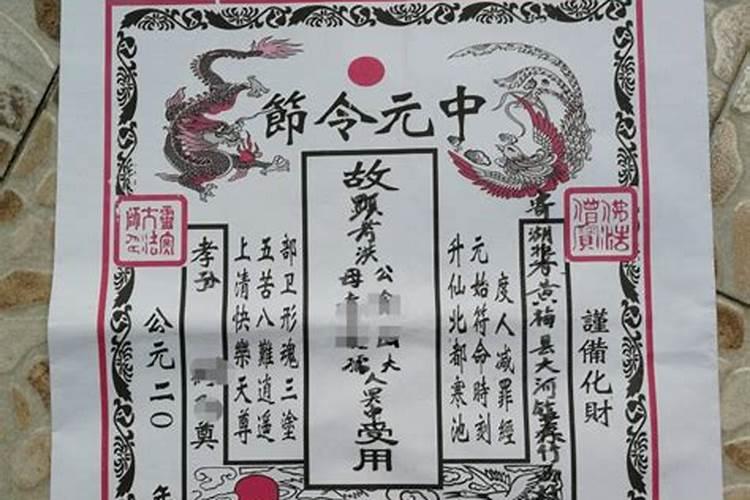 中元令節
佛法僧寶
謹備化財
寄湖北黄梅县大河镇
度人减罪經
元始符命時刻
升仙北都寒池
故
顯考洪公大人
母孺
受用
部卫形魂三塗
五苦八難逍遥
上清快樂天尊
孝孙
奠
靈寶大法師印
公元二〇 年